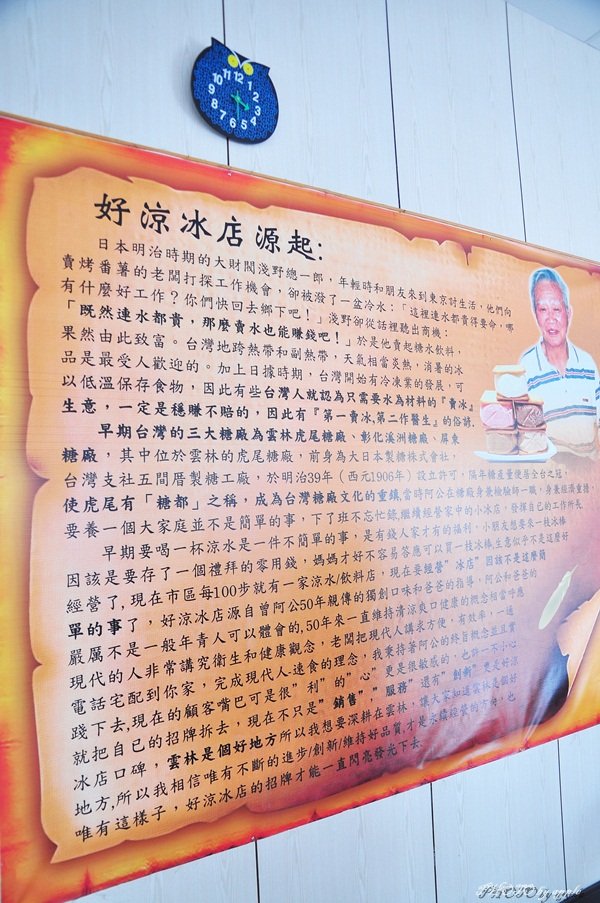 12
11
1
10
2
9
3
8
4
7
5
6
好涼冰店源起:
日本明治時期的大財閥淺野總一郎，年輕時和朋友來到東京討生活，他們向
賣烤番薯的老闆打探工作機會，卻被潑了一盆冷水：「這裡連水都貴得要命，哪
有什麼好工作？你們快回去鄉下吧！」淺野卻從話裡聽出商機：
「既然連水都貴，那麼賣水也能賺錢吧！」於是他賣起糖水飲料，
果然由此致富。台灣地跨熱帶和副熱帶，天氣相當炎熱，消暑的冰
品是最受人歡迎的。加上日據時期，台灣開始有冷凍業的發展，可
以低溫保存食物，因此有些台灣人就認為只需要水為材料的『賣冰』
生意，一定是穩賺不賠的，因此有『第一賣冰,第二作醫生』的俗諺.
早期台灣的三大糖廠為雲林虎尾糖廠、彰化溪洲糖廠、屏東
糖廠，其中位於雲林的虎尾糖廠，前身為大日本製糖株式會社,
台灣支社五間厝製糖工廠，於明治39年（西元1906年）設立許可，隔年糖產量便居全台之冠,
使虎尾有「糖都」之稱，成為台灣糖廠文化的重鎮,當時阿公在糖廠身兼檢驗師一職，身兼經濟重擔，
要養一個大家庭並不是簡單的事，下了班不忘忙錄,繼續經營家中的小冰店，發揮自己的工作所長
早期要喝一杯涼水是一件不簡單的事，是有錢人家才有的福利，小朋友想要來一枝冰棒
因該是要存了一個禮拜的零用錢，媽媽才好不容易答應可以買一枝冰棒,生意似乎不是這麼好
經營了,現在市區每100步就有一家涼水/飲料店，現在要經營”冰店”因該不是這麼簡
單的事了，好涼冰店源自曾阿公50年親傳的獨創口味和爸爸的指導，阿公和爸爸的
嚴厲不是一般年青人可以體會的,50年來一直維持清涼爽口健康的概念相當呼應
現代的人非常講究衛生和健康觀念，老闆把現代人講求方便，有效率，一通
電話宅配到你家，完成現代人-速食的理念，我秉持著阿公的終旨概念並且實
踐下去,現在的顧客嘴巴可是很”利”的”心”更是很敏感的，也許一不小心
就把自己的招牌拆去，現在不只是”銷售”,”服務”還有”創新”更是好涼
冰店口碑，雲林是個好地方所以我想要深耕在雲林，讓大家知道雲林是個好
地方,所以我相信唯有不斷的進步/創新/維持好品質,才是永續經營的方向，也
唯有這樣子，好涼冰店的招牌才能一直閃亮發光下去.